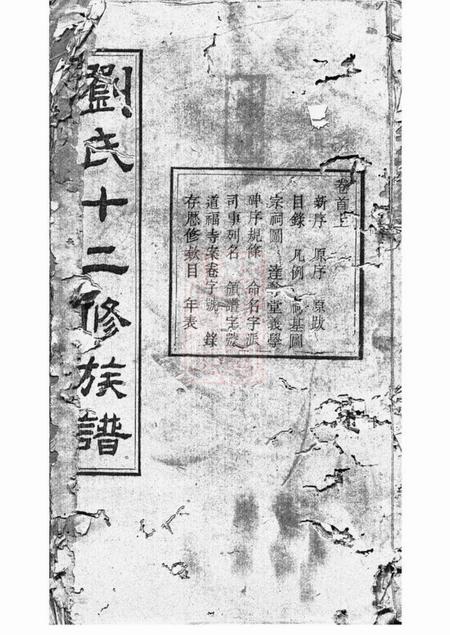 劉氏十二修族譜
卷首上
新序 原序 原跋
目錄 凡例 祠基圖
宗祠圖 達 堂義學
碑序規條 命名字派
司事列名 領譜字號
道福寺案卷字號 錄
存歷修數目 年表